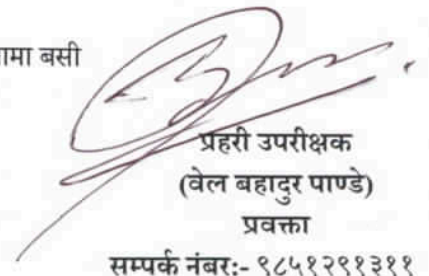 ामा बसी
प्रहरी उपरीक्षक
(वेल बहादुर पाण्डे)
प्रवक्ता
सम्पर्क नंबर:- ९८५१२९१३११